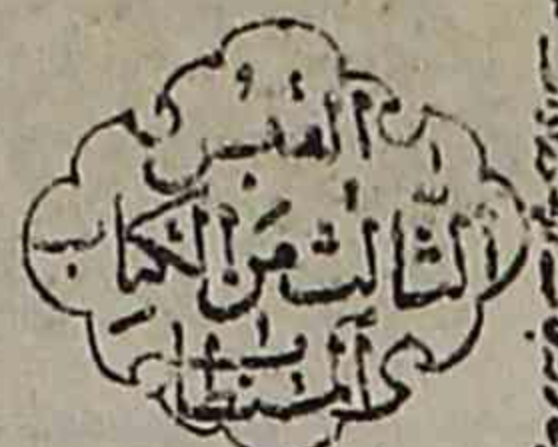 القبس
الثالث من الكتاب
المستطاب